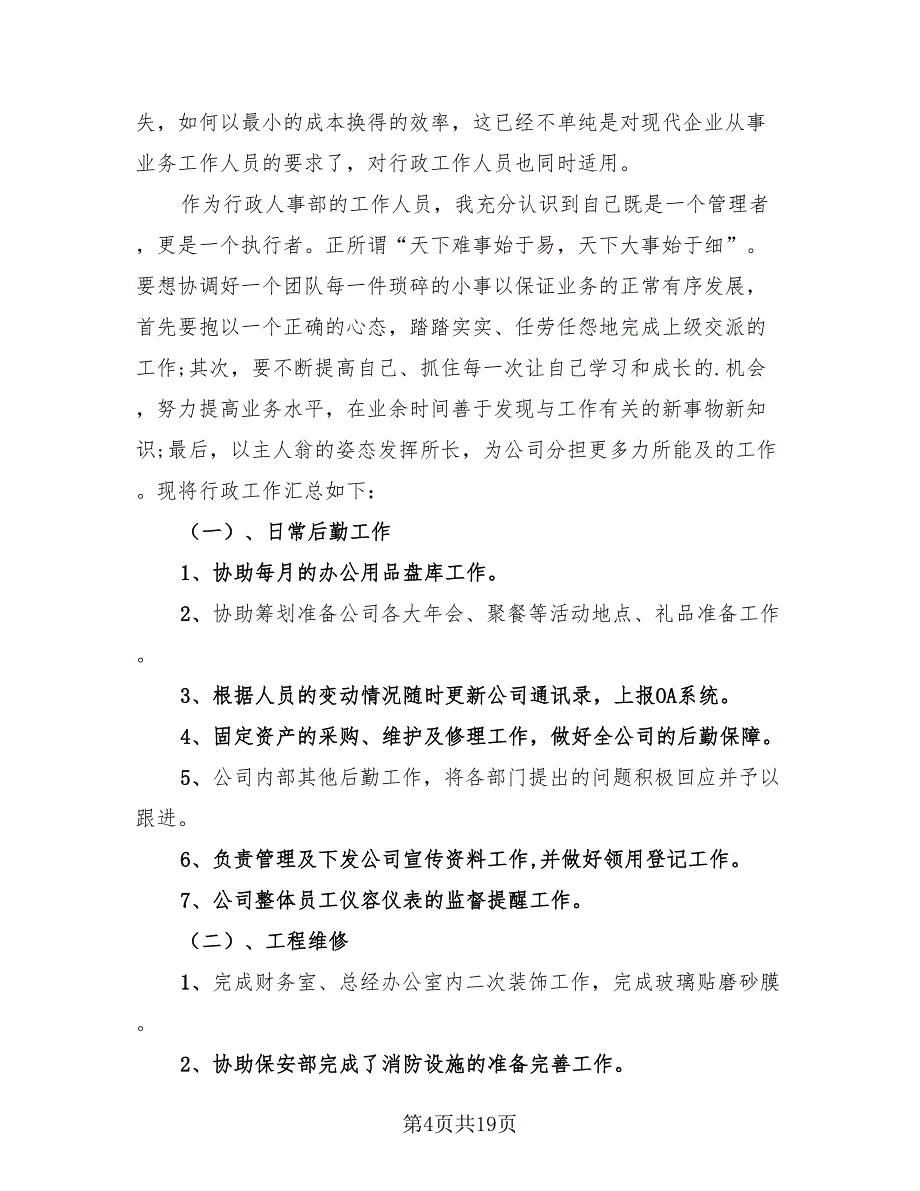 失，如何以最小的成本换得的效率，这已经不单纯是对现代企业从事
业务工作人员的要求了，对行政工作人员也同时适用。
作为行政人事部的工作人员，我充分认识到自己既是一个管理者
，更是一个执行者。正所谓“天下难事始于易，天下大事始于细”。
要想协调好一个团队每一件琐碎的小事以保证业务的正常有序发展，
首先要抱以一个正确的心态，踏踏实实、任劳任怨地完成上级交派的
工作;其次，要不断提高自己、抓住每一次让自己学习和成长的.机会
，努力提高业务水平，在业余时间善于发现与工作有关的新事物新知
识;最后，以主人翁的姿态发挥所长，为公司分担更多力所能及的工作
。现将行政工作汇总如下：
（一）、日常后勤工作
1、协助每月的办公用品盘库工作。
2、协助筹划准备公司各大年会、聚餐等活动地点、礼品准备工作
。
3、根据人员的变动情况随时更新公司通讯录，上报OA系统。
4、固定资产的采购、维护及修理工作，做好全公司的后勤保障。
5、公司内部其他后勤工作，将各部门提出的问题积极回应并予以
跟进。
6、负责管理及下发公司宣传资料工作,并做好领用登记工作。
7、公司整体员工仪容仪表的监督提醒工作。
（二）、工程维修
1、完成财务室、总经办公室内二次装饰工作，完成玻璃贴磨砂膜
。
2、协助保安部完成了消防设施的准备完善工作。
第4页共19页